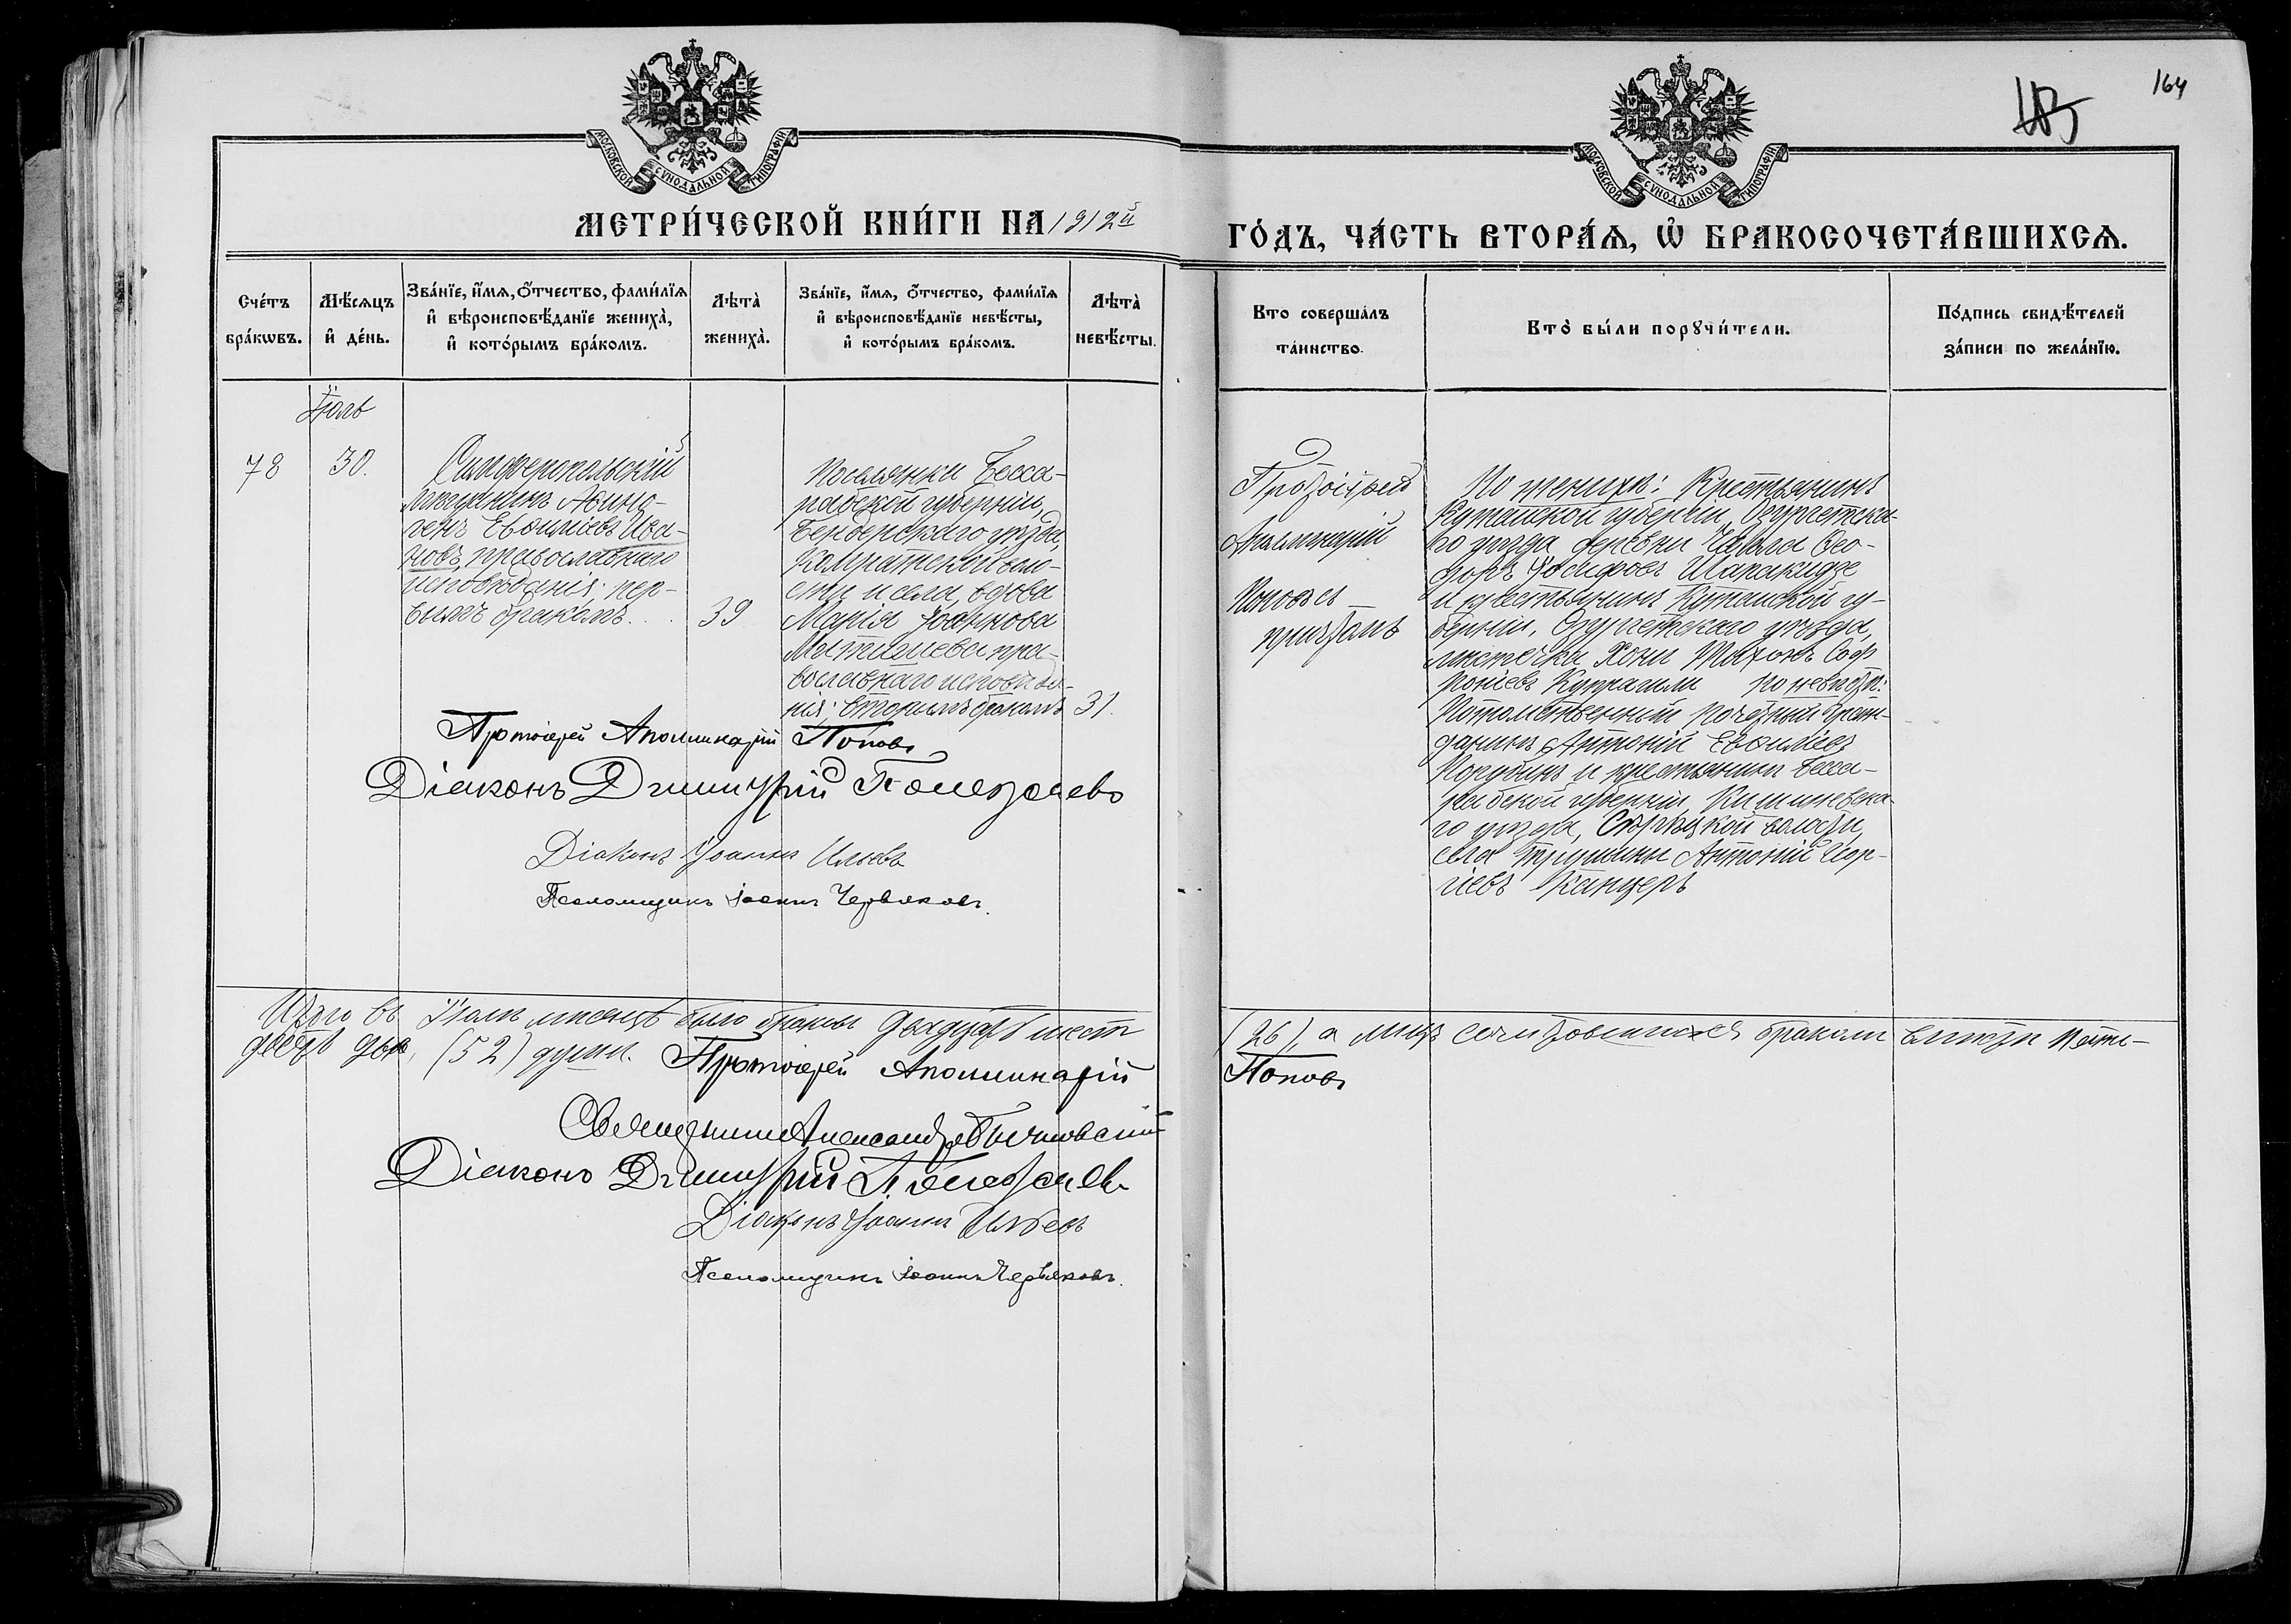 164
МОСКОВСКОЙ СѴНОДАЛЬНОЙ ТИПОГРАФІИ
МОСКОВСКОЙ СѴНОДАЛЬНОЙ ТИПОГРАФІИ
МЕТРИ́ЧЕСКОЙ КНИ́ГИ НА 1912й
ГО́ДЪ, ЧА́СТЬ ВТОРА́Ѧ, Ѡ҆ БРАКОСОЧЕТА́ВШИХСѦ.
Сче́тъ
бра́кѡвъ.
Мѣ́сѧцъ
и҆ де́нь.
Зва́нїе, и҆́мѧ, ѻ҆́тчество, фами́лїѧ
и҆ вѣроисповѣ́данїе жениха̀,
и҆ кото́рымъ бра́комъ.
Лѣта̀
жениха̀.
Зва́нїе, и҆́мѧ, ѻ҆́тчество, фами́лїѧ
и҆ вѣроисповѣ́данїе невѣ́сты,
и҆ кото́рымъ бра́комъ.
Лѣта̀
невѣ́сты.
Кто совершалъ
та́инство.
Кто̀ бы́ли порꙋчи́тели.
По́дпись свидѣ́телей
за́писи по жела́нїю.
Іюль
78
30.
Симферопольскій
мѣщанинъ Аѳино-
генъ Евѳиміевъ Ива-
новъ, православнаго
исповѣданія; пер-
вымъ бракомъ.
39
Поселянка Бесса-
рабской губерніи,
Бендерскаго уѣзда,
Комратской воло-
сти и села, вдова
Марія Іоаннова
пра-
вославнаго исповѣда-
нія; вторымъ бракомъ
31.
Протоіерей
Аполлинарій
Поповъ
По женихѣ: Крестьянинъ
Кутаиской губерніи, Озургетска-
го уѣзда деревни Ѳео-
Іосифовъ Шаракидзе
и крестьянинъ Кутаиской гу-
берніи, Озургетскаго уѣзда,
мѣстечка Хони Соф-
роніевъ по невѣстѣ:
Потомственный почетный граж-
данинъ Антоній Евѳиміевъ
и крестьянинъ Бесса-
рабской губерніи, Кишиневска-
го уѣзда, волости,
села Антоній Геор-
гіевъ
Протоіерей Аполлинарій Поповъ
Діаконъ Димитрій
Діаконъ Іоаннъ Ильевъ
Псаломщикъ Іоаннъ Червяковъ.
Итого въ Іюлѣ мѣсяцѣ было браковъ двадцать шесть (26), а лицъ сочетовшихся бракомъ пять-
десятъ двѣ, (52) души. Протоіерей Аполлинарій Поповъ
Священникъ Александръ
Діаконъ Димитрій
Діаконъ Іоаннъ Ильевъ
Псаломщикъ Іоаннъ Червяковъ.